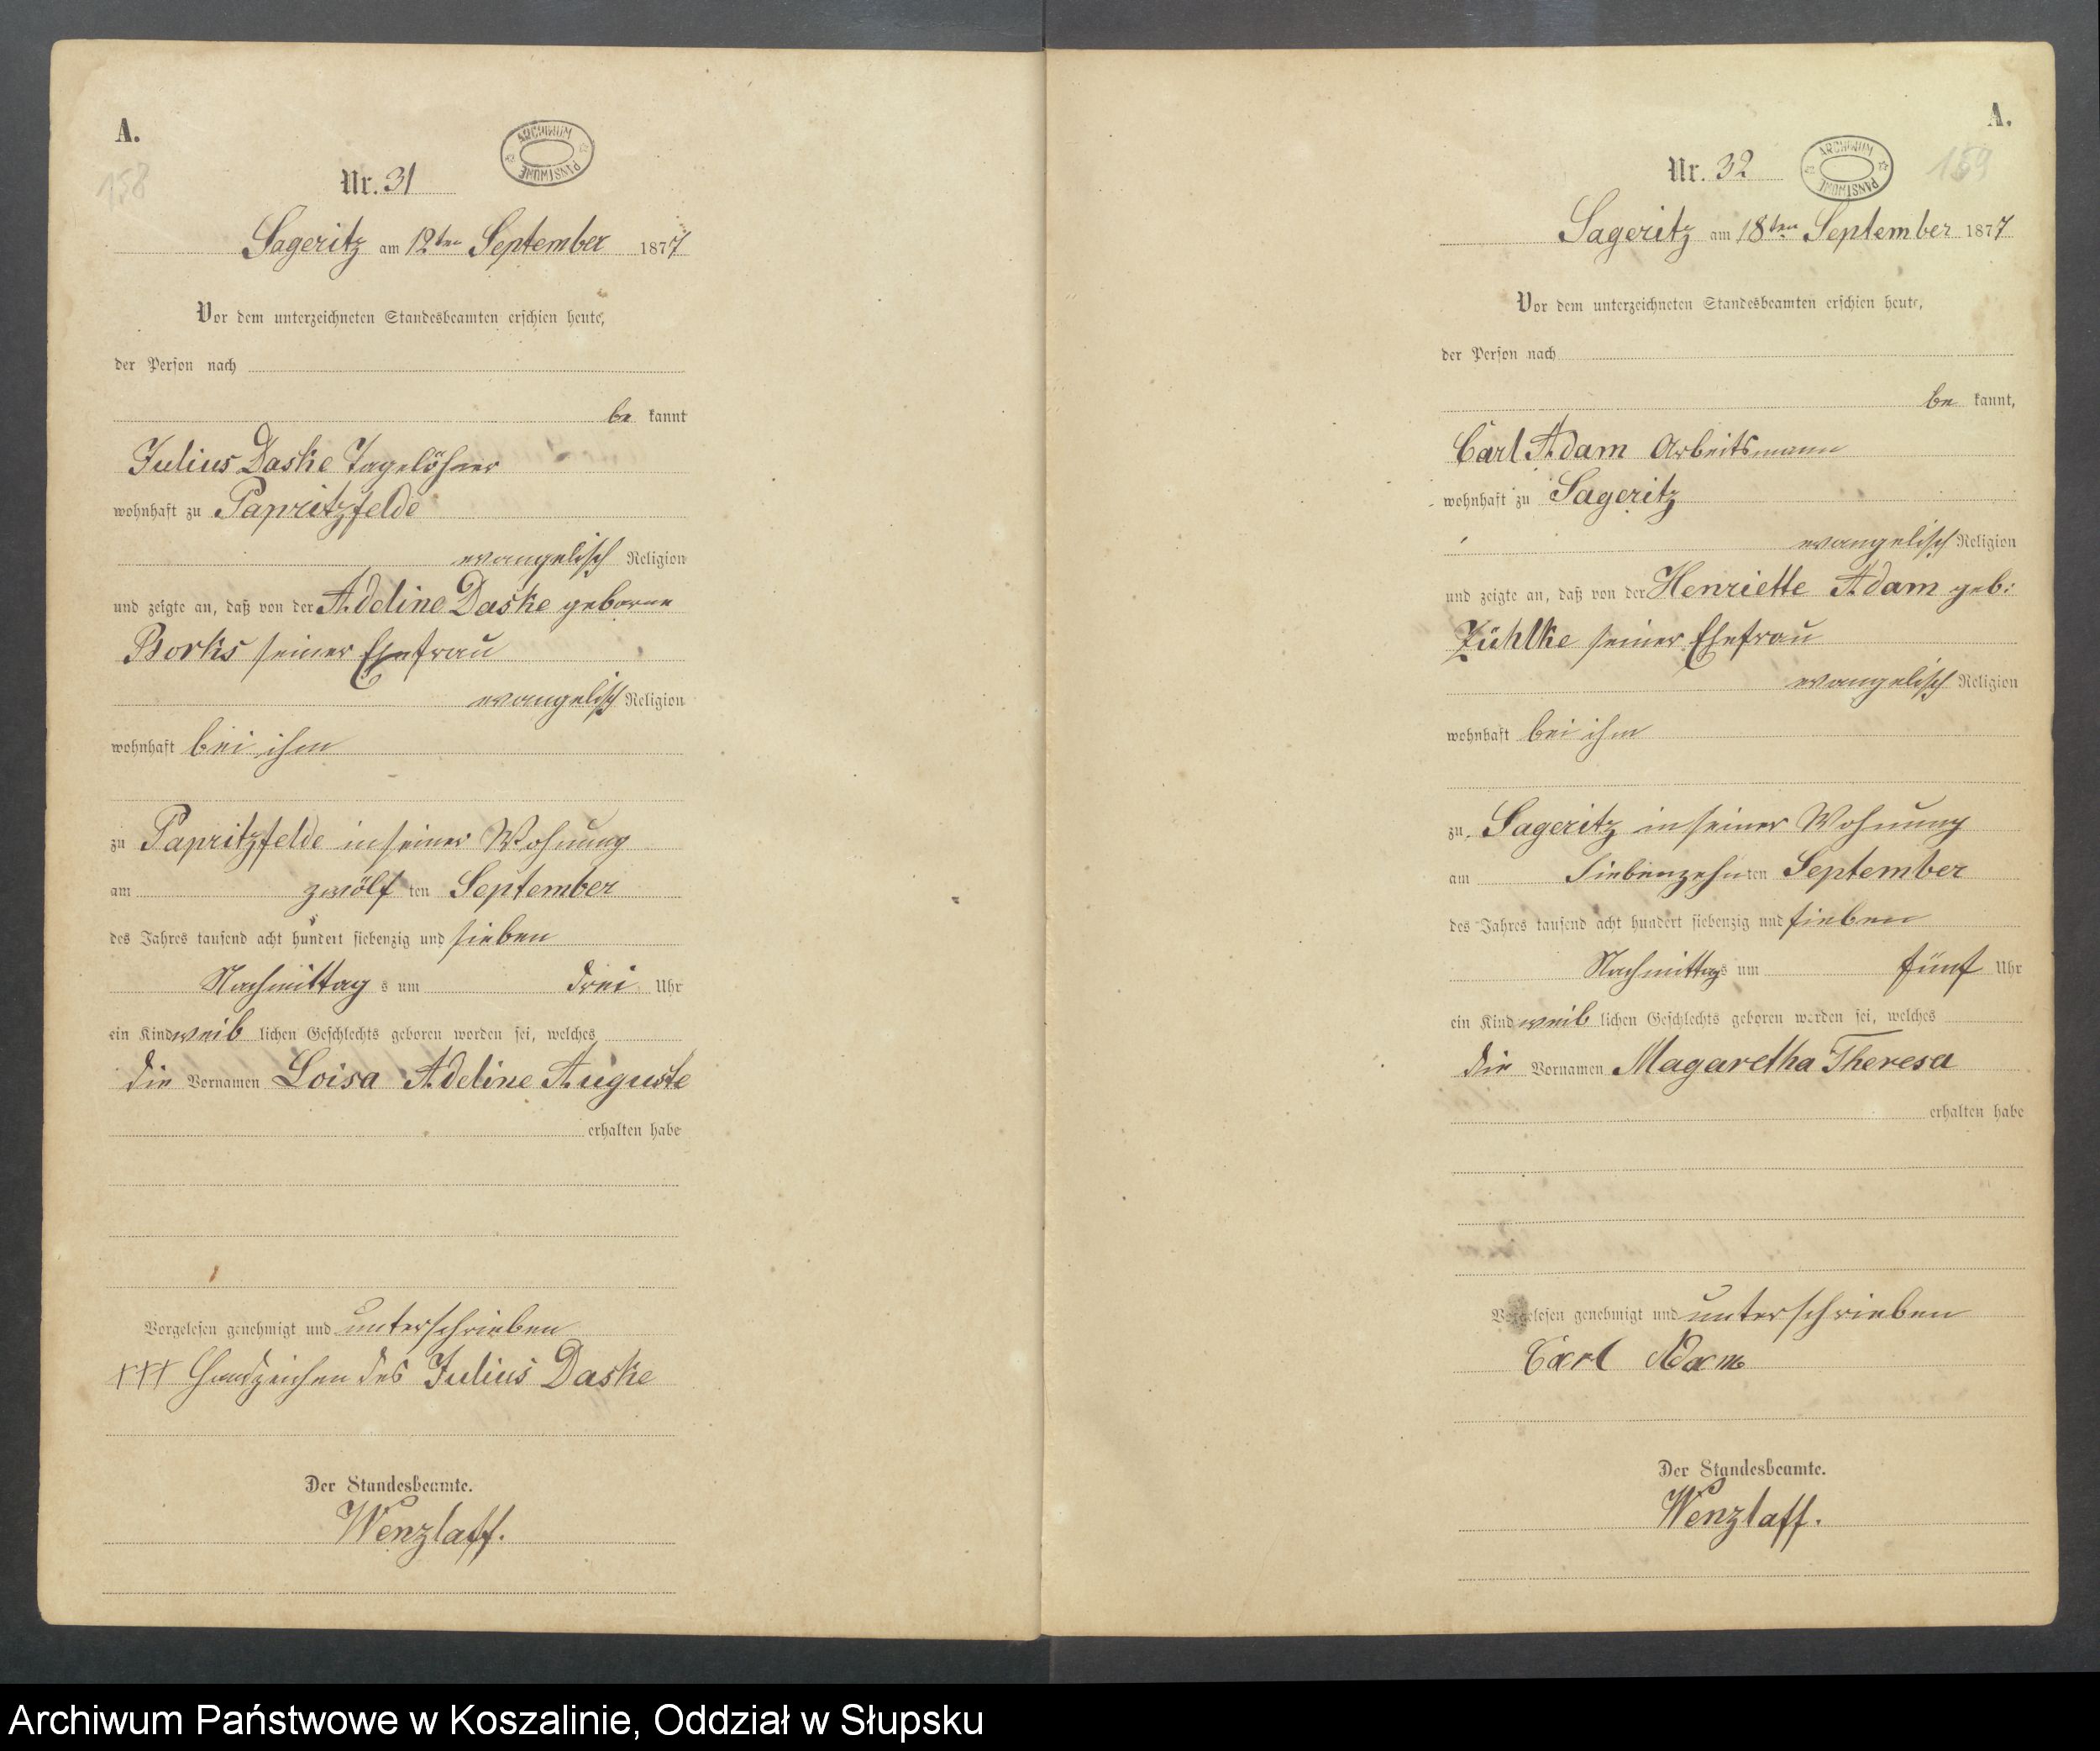 A.
158
ARCHIWUM PAŃSTWOWE
Nr. 31
Sageritz am 12ten September 1877
Vor dem unterzeichneten Standesbeamten erschien heute,
der Person nach
be kannt
Julius Daske Tagelöhner
wohnhaft zu Papritzfelde
evangelisch Religion
und zeigte an, daß von der Adeline Daske geborne
Borks seiner Ehefrau
evangelisch Religion
wohnhaft bei ihm
zu Papritzfelde in seiner Wohnung
am zwölf ten September
des Jahres tausend acht hundert siebenzig und sieben
Nachmittag s um drei Uhr
ein Kind weib lichen Geschlechts geboren worden sei, welches
die Vornamen Loisa Adeline Auguste
erhalten habe
Vorgelesen genehmigt und unterschrieben
+++ Handzeichen des Julius Daske
Der Standesbeamte.
Wenzlaff.
A.
159
ARCHIWUM PAŃSTWOWE
Nr. 32
Sageritz am 18ten September 1877
Vor dem unterzeichneten Standesbeamten erschien heute,
der Person nach
be kannt,
Carl Adam Arbeitsmann
wohnhaft zu Sageritz
evangelisch Religion
und zeigte an, daß von der Henriette Adam geb:
Zühlke seiner Ehefrau
evangelisch Religion
wohnhaft bei ihm
zu Sageritz in seiner Wohnung
am Siebenzehn ten September
des Jahres tausend acht hundert siebenzig und sieben
Nachmittag s um fünf Uhr
ein Kind weib lichen Geschlechts geboren worden sei, welches
die Vornamen Magaretha Theresa
erhalten habe
Vorgelesen genehmigt und unterschrieben
Carl Adam
Der Standesbeamte.
Wenzlaff.
Archiwum Państwowe w Koszalinie, Oddział w Słupsku